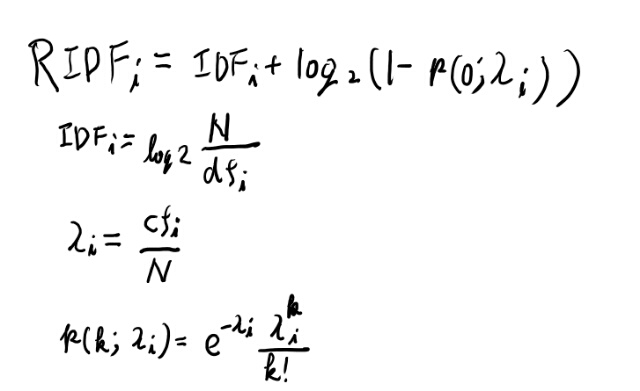 RIDF_i = IDF_i + log_2(1 - p(0; λ_i))
IDF_i = log 2 N/df_i
λ_i = cf_i/N
p(k; λ_i) = e^{-λ_i} λ_i^k/k!